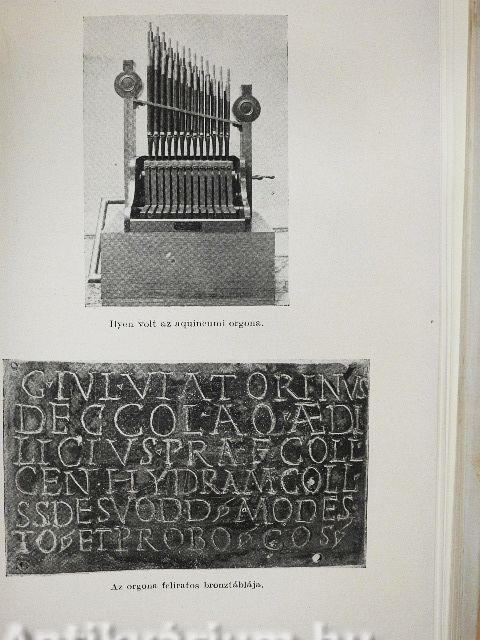 Ilyen volt az aquincumi orgona.
G·IVL·VIATORINVS
DEC COL·AQ·ÆDI
LICIVS·PRAEF COLL·
CEN·HYDRAM COLL·
S·S·DE SVO D·D·MODES
TO·ET PROBO·COS·
Az orgona feliratos bronztáblája.
Antikvárium.hu